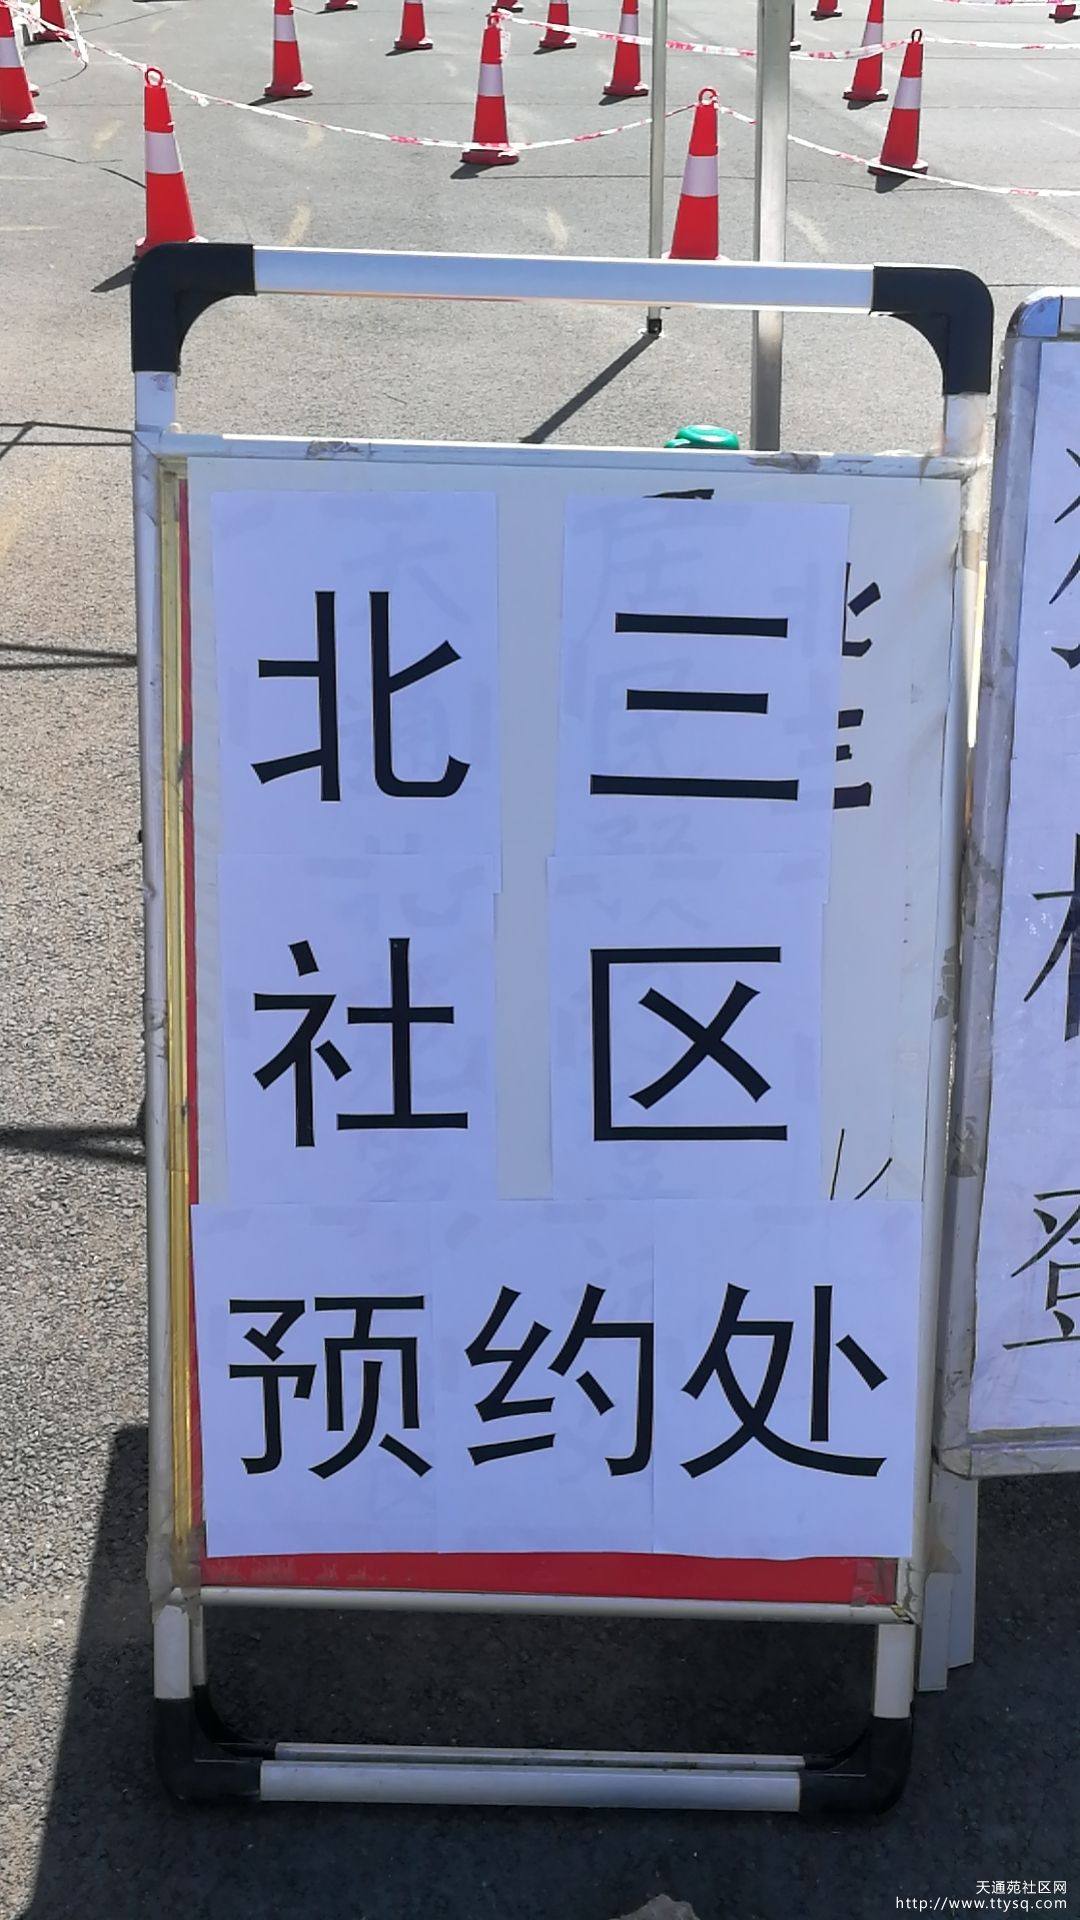 北三
社区
预约处
北三
登
天通苑社区网
http://www.ttysq.com